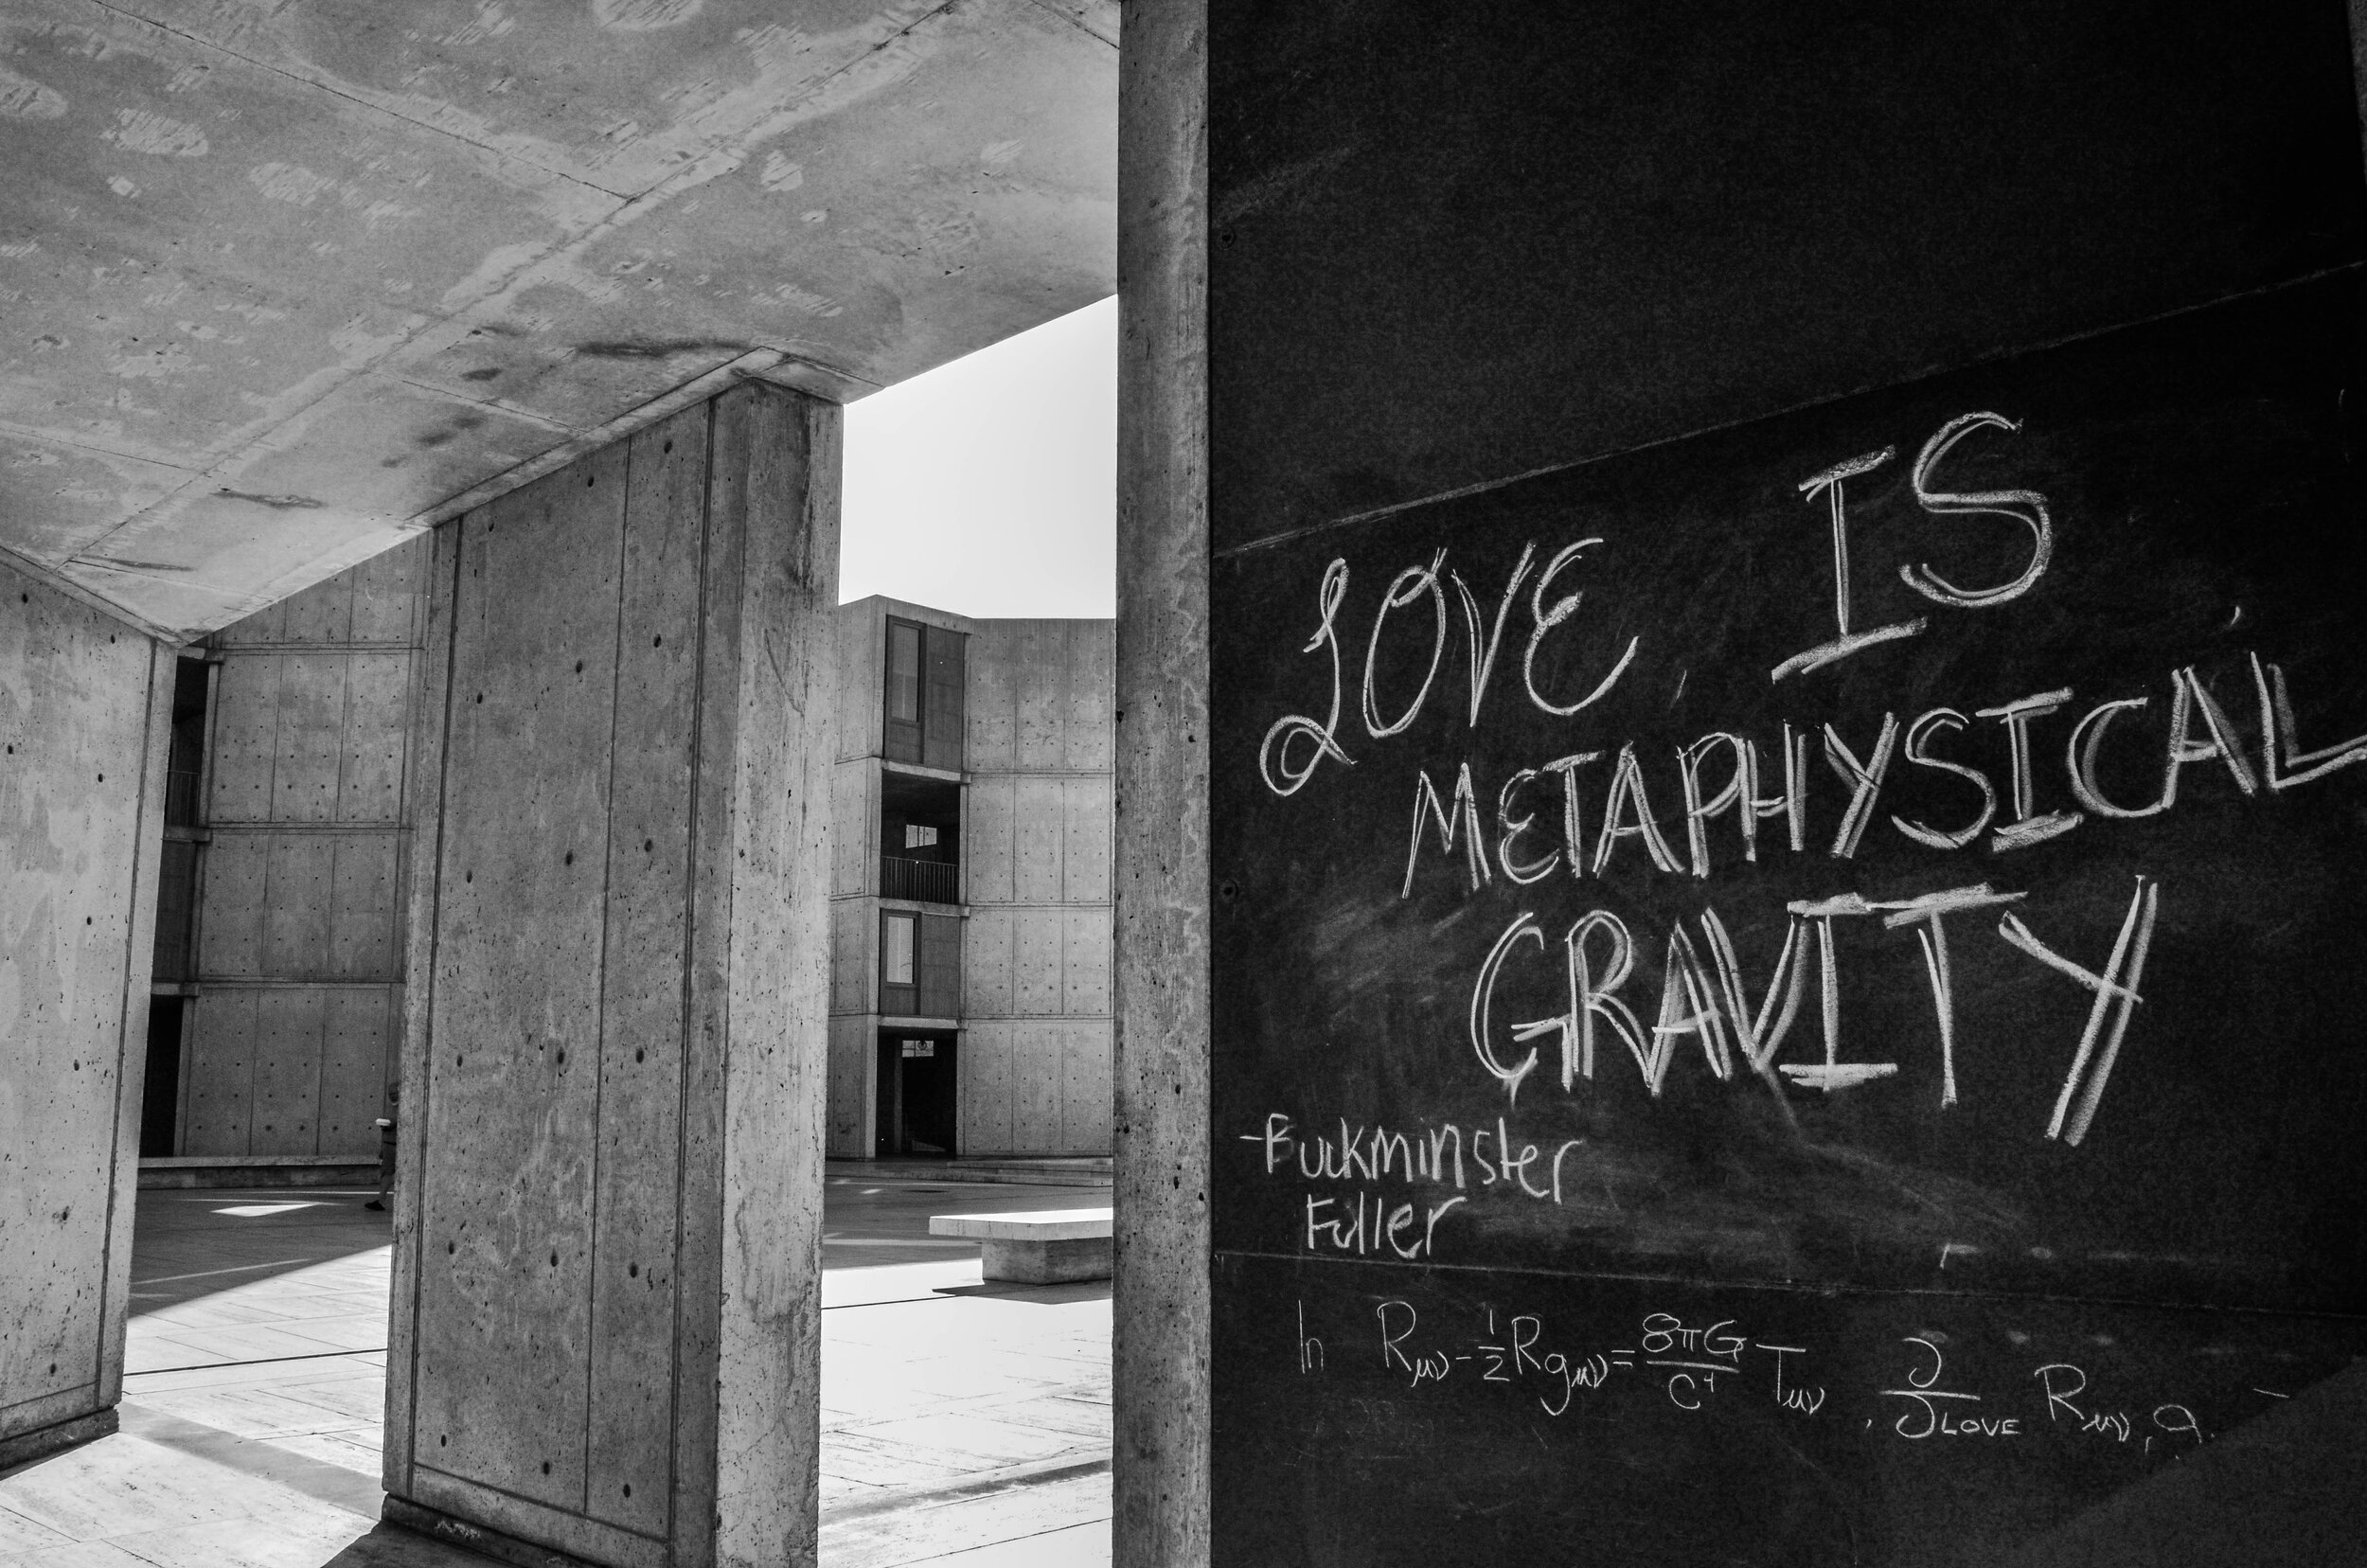 LOVE IS
METAPHYSICAL
GRAVITY
-Buckminster
Fuller
In Rμν - 1/2 Rgμν = 8πG/C⁴ Tμν, ∂/∂LOVE Rμν,